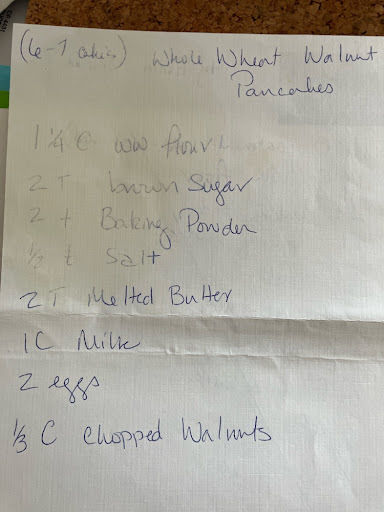 (6-7 cakes) Whole Wheat Walnut
Pancakes
1 1/4 C ww flour
2 T brown Sugar
2 t Baking Powder
1/2 t Salt
2 T Melted Butter
1C Milk
2 eggs
1/3 C chopped Walnuts